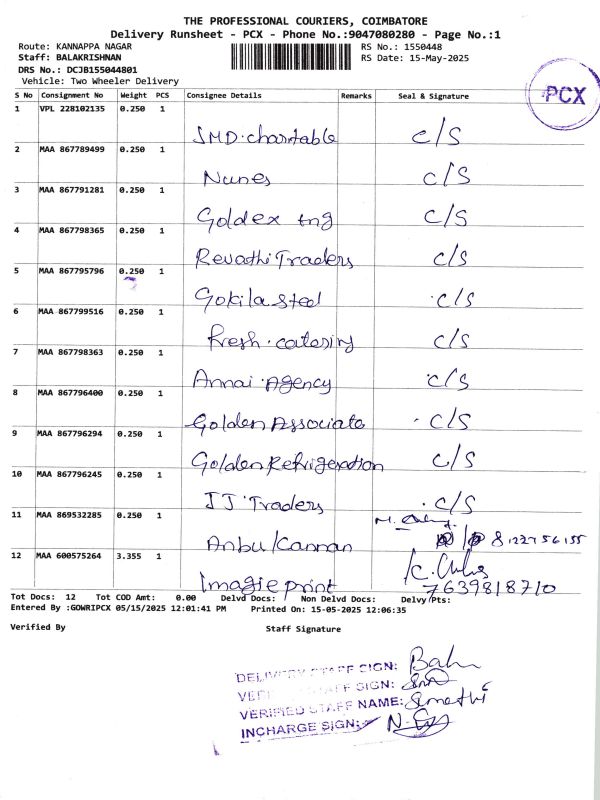 THE PROFESSIONAL COURIERS, COIMBATORE
Delivery Runsheet - PCX - Phone No.:9047080280 - Page No.:1
Route: KANNAPPA NAGAR
Staff: BALAKRISHNAN
DRS No.: DCJB155044801
Vehicle: Two Wheeler Delivery
RS No.: 1550448
RS Date: 15-May-2025
PCX
S No Consignment No Weight PCS Consignee Details Remarks Seal & Signature
1 VPL 228102135 0.250 1 JMD.charitable C/S
2 MAA 867789499 0.250 1 Nunes C/S
3 MAA 867791281 0.250 1 Goldex Eng C/S
4 MAA 867798365 0.250 1 Revathi Traders C/S
5 MAA 867795796 0.250 1 Gokila Steel C/S
6 MAA 867799516 0.250 1 Fresh.catering C/S
7 MAA 867798363 0.250 1 Annai.Agency C/S
8 MAA 867796400 0.250 1 Golden Associate C/S
9 MAA 867796294 0.250 1 Golden Refrigeration C/S
10 MAA 867796245 0.250 1 JJ.Traders C/S
11 MAA 869532285 0.250 1 Anbu/Cannan
12 MAA 600575264 3.355 1 Imagie print 7639818710
Tot Docs: 12 Tot COD Amt: 0.00 Delvd Docs: Non Delvd Docs: Delvy Pts:
Entered By :GOWRIPCX 05/15/2025 12:01:41 PM Printed On: 15-05-2025 12:06:35
Verified By Staff Signature
DELIVERY STAFF SIGN:
VERIFIED STAFF SIGN:
VERIFIED STAFF NAME:
INCHARGE SIGN: